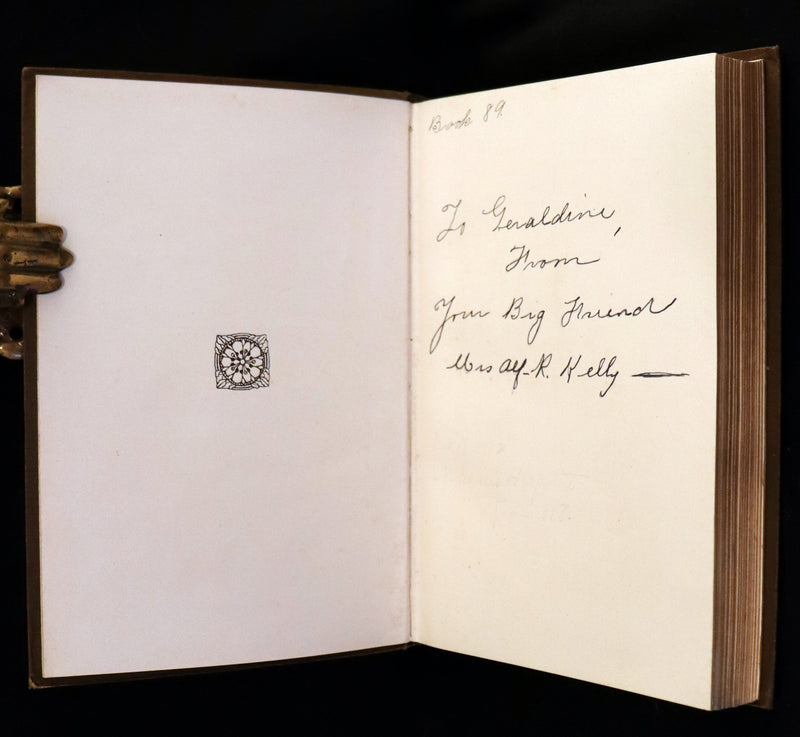 Book 89.
To Geraldine,
From
Your Big Friend
Mrs Alf. R. Kelly —